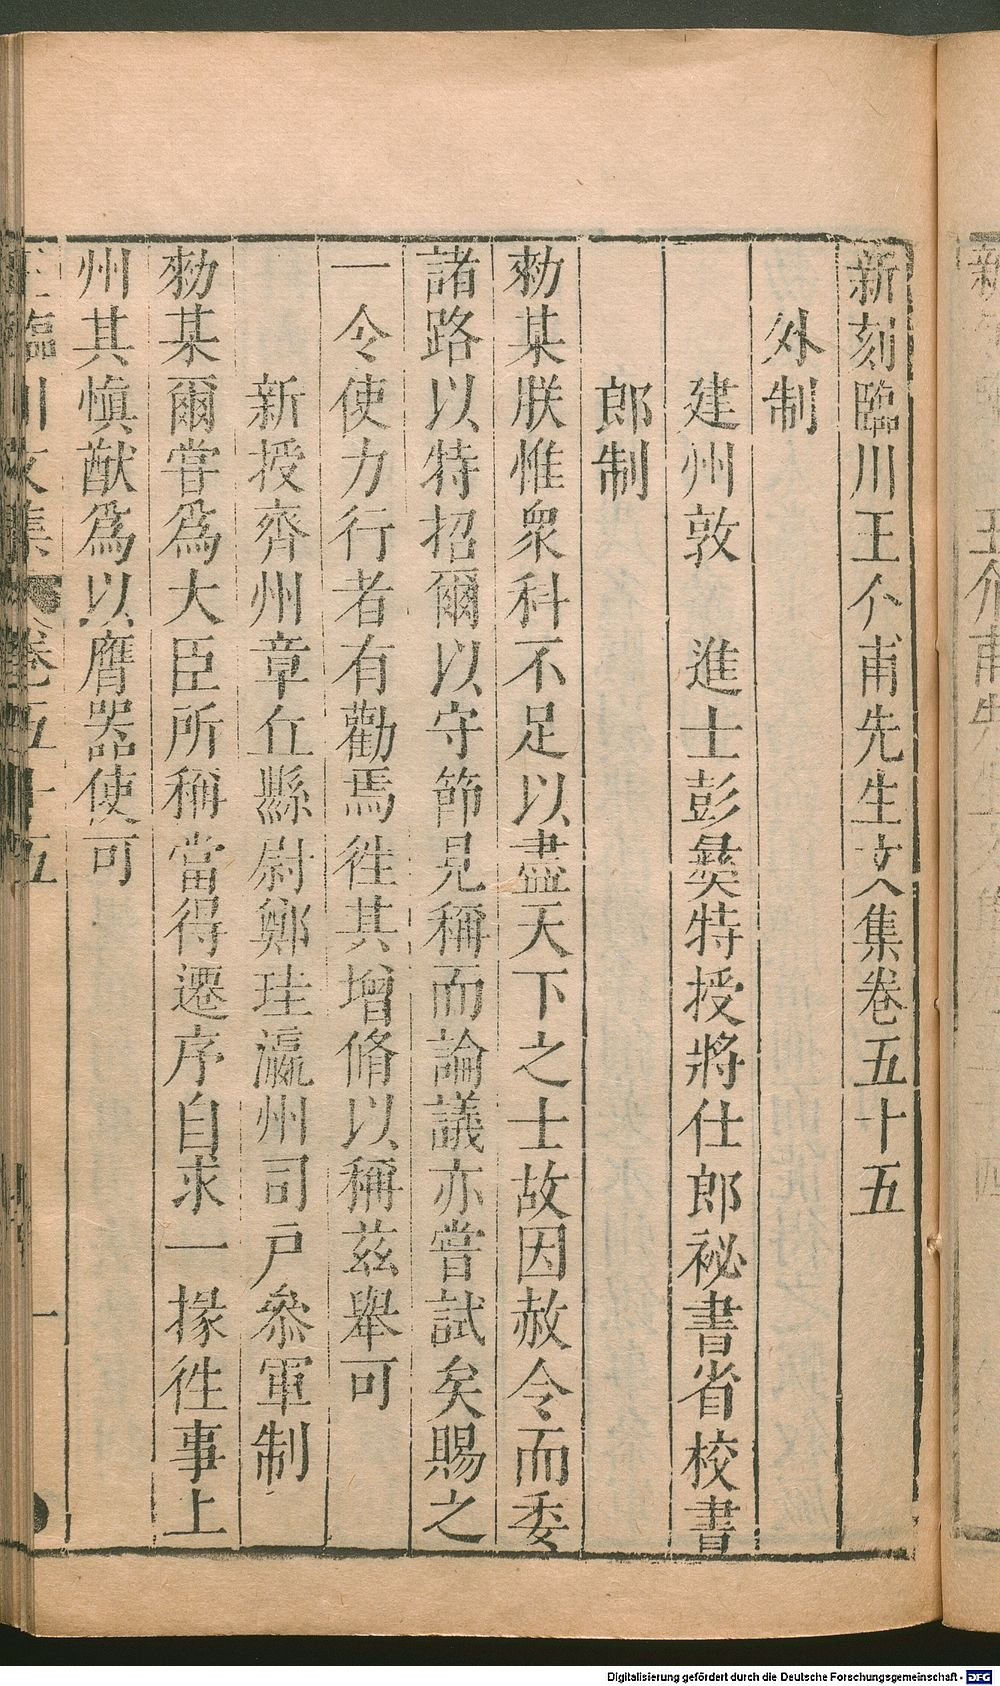 新刻臨川王介甫先生文集卷五十五
外制
建州敦 進士彭彛特授將仕郎祕書省校書
郎制
勑某朕惟衆科不足以盡天下之士故因赦令而委
諸路以特招爾以守節見稱而論議亦嘗試矣賜之
一令使力行者有勸焉徃其增脩以稱兹舉可
新授齊州章丘縣尉鄭珪瀛州司戸叅軍制
勑某爾嘗爲大臣所稱當得遷序自求一掾徃事上
州其愼猷爲以膺器使可
王臨川文集 卷五十五 一
Digitalisierung gefördert durch die Deutsche Forschungsgemeinschaft - DFG